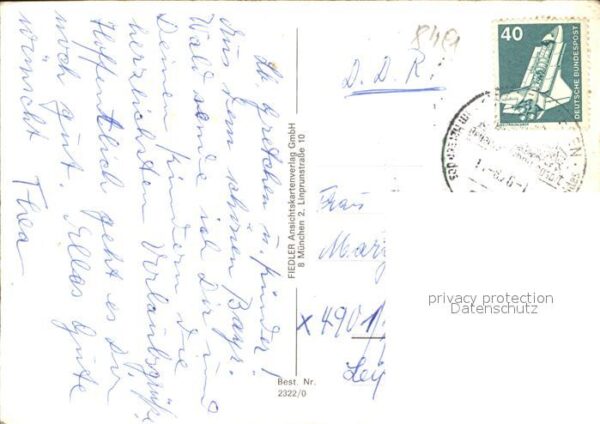 Lb. Gretchen u. Kinder!
Aus dem schönen Bayr.
Wald sende ich Dir und
Deinen Kindern die
herzlichsten Urlaubsgrüße
Hoffentlich geht es Dir
noch gut. Alles Gute
wünscht Thea
FIEDLER Ansichtskartenverlag GmbH
8 München 2, Linprunstraße 10
Best. Nr.
2322/0
40
DEUTSCHE BUNDESPOST
D. D. R.
Frau
x 490
privacy protection
Datenschutz